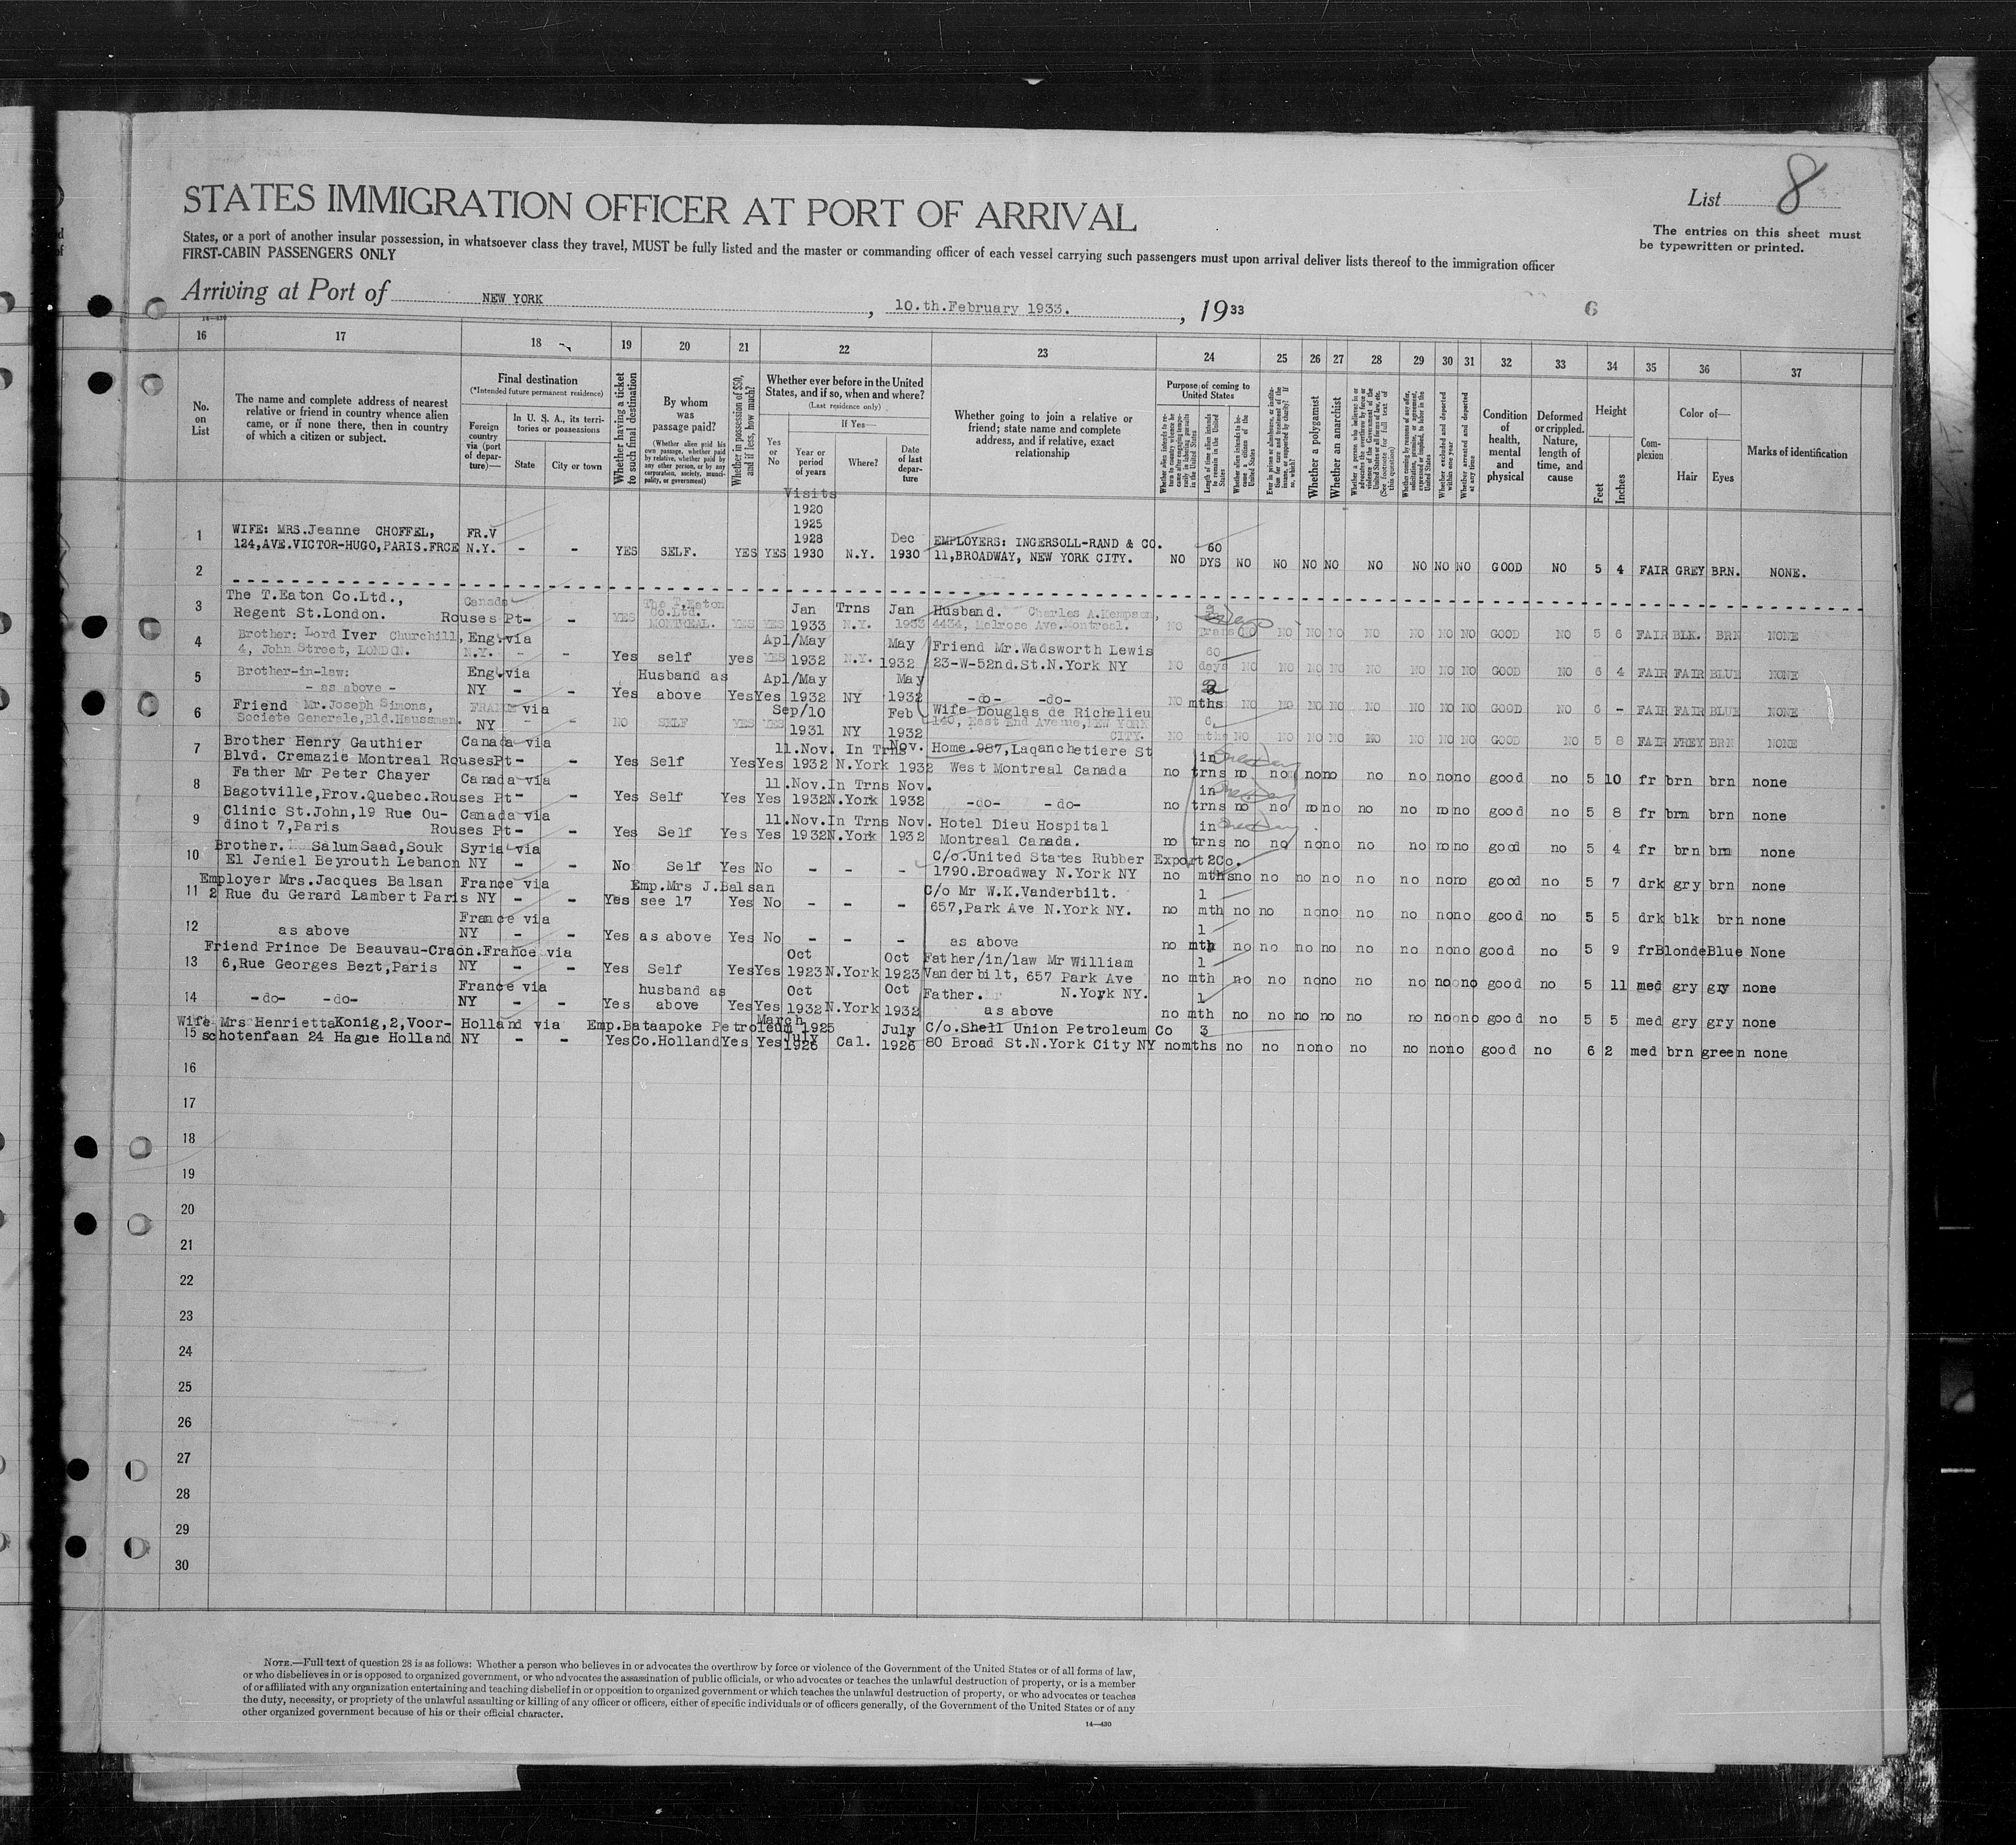 List 8
STATES IMMIGRATION OFFICER AT PORT OF ARRIVAL
The entries on this sheet must
be typewritten or printed.
States, or a port of another insular possession, in whatsoever class they travel, MUST be fully listed and the master or commanding officer of each vessel carrying such passengers must upon arrival deliver lists thereof to the immigration officer
FIRST-CABIN PASSENGERS ONLY
Arriving at Port of NEW YORK, 10.th.February 1933., 1933
6
16 17 18 19 20 21 22 23 24 25 26 27 28 29 30 31 32 33 34 35 36 37
No. on List
The name and complete address of nearest relative or friend in country whence alien came, or if none there, then in country of which a citizen or subject.
Final destination
(*Intended future permanent residence)
Foreign country via (port of departure)—
In U. S. A., its territories or possessions
State
City or town
Whether having a ticket to such final destination
By whom was passage paid?
(Whether alien paid his own passage, whether paid by relative, whether paid by any other person, or by any corporation, society, municipality, or government)
Whether in possession of $50, and if less, how much?
Whether ever before in the United States, and if so, when and where?
(Last residence only)
Yes or No
If Yes—
Year or period of years
Where?
Date of last departure
Whether going to join a relative or friend; state name and complete address, and if relative, exact relationship
Purpose of coming to United States
Whether alien intends to return to country whence he came after engaging temporarily in laboring pursuits in the United States
Length of time alien intends to remain in the United States
Whether alien intends to become a citizen of the United States
Ever in prison or almshouse, or institution for care and treatment of the insane, or supported by charity? If so, which?
Whether a polygamist
Whether an anarchist
Whether a person who believes in or advocates the overthrow by force or violence of the Government of the United States or all forms of law, etc. (See footnote for full text of this question)
Whether coming by reasons of any offer, solicitation, promise, or agreement, expressed or implied, to labor in the United States
Whether excluded and deported within one year
Whether arrested and deported at any time
Condition of health, mental and physical
Deformed or crippled. Nature, length of time, and cause
Height
Feet
Inches
Complexion
Color of—
Hair
Eyes
Marks of identification
Visits
1920
1925
1928
1 WIFE: MRS.Jeanne CHOFFEL, FR.V Dec EMPLOYERS: INGERSOLL-RAND & CO. 60
124,AVE.VICTOR-HUGO,PARIS.FRCE N.Y. - - YES SELF. YES YES 1930 N.Y. 1930 11,BROADWAY, NEW YORK CITY. NO DYS NO NO NO NO NO NO NO NO GOOD NO 5 4 FAIR GREY BRN. NONE.
2
3 The T.Eaton Co.Ltd., Canada The T.Eaton Co.Ltd. Jan Trns Jan Husband. Charles A.Kempson,
Regent St.London. Rouses Pt- - YES MONTREAL. YES YES 1933 N.Y. 1933 4434, Melrose Ave.Montreal. NO trans NO NO NO NO NO NO NO NO GOOD NO 5 6 FAIR BLK. BRN NONE
4 Brother: Lord Iver Churchill, Eng.via Apl/May May Friend Mr.Wadsworth Lewis 60
4, John Street, LONDON. N.Y. - - Yes self yes YES 1932 N.Y. 1932 23-W-52nd.St.N.York NY NO days NO NO NO NO NO NO NO NO GOOD NO 6 4 FAIR FAIR BLUE NONE
5 Brother-in-law: Eng.via Husband as Apl/May May 2
- as above - NY - - Yes above Yes Yes 1932 NY 1932 -do- -do- NO mths NO NO NO NO NO NO NO NO GOOD NO 6 - FAIR FAIR BLUE NONE
6 Friend Mr.Joseph Simons, FRANCE via Sep/10 Feb Wife Douglas de Richelieu 6
Societe Generale,Bld.Haussman. NY - - NO SELF YES YES 1931 NY 1932 140, East End Avenue,NEW YORK CITY. NO mths NO NO NO NO NO NO NO NO GOOD NO 5 8 FAIR FREY BRN NONE
7 Brother Henry Gauthier Canada via 11.Nov. In Trns Nov. Home.987,Laqanchetiere St in
Blvd. Cremazie Montreal RousesPt- - Yes Self Yes Yes 1932 N.York 1932 West Montreal Canada no trns no no no no no no no no good no 5 10 fr brn brn none
8 Father Mr Peter Chayer Canada via 11.Nov.In Trns Nov. in
Bagotville,Prov.Quebec.Rouses Pt- - Yes Self Yes Yes 1932 N.York 1932 -do- -do- no trns no no no no no no no no good no 5 8 fr brn brn none
9 Clinic St.John,19 Rue Ou- Canada via 11.Nov.In Trns Nov. Hotel Dieu Hospital in
dinot 7,Paris Rouses Pt- - Yes Self Yes Yes 1932 N.York 1932 Montreal Canada. no trns no no no no no no no no good no 5 4 fr brn brn none
10 Brother. Salum Saad,Souk Syria via C/o.United States Rubber Export Co. 2
El Jeniel Beyrouth Lebanon NY - - No Self Yes No - - - 1790.Broadway N.York NY no mths no no no no no no no no good no 5 7 drk gry brn none
11 Employer Mrs.Jacques Balsan France via Emp.Mrs J.Balsan C/o Mr W.K.Vanderbilt. 1
2 Rue du Gerard Lambert Paris NY - - Yes see 17 Yes No - - - 657,Park Ave N.York NY. no mth no no no no no no no no good no 5 5 drk blk brn none
12 France via 1
as above NY - - Yes as above Yes No - - - as above no mth no no no no no no no no good no 5 9 fr Blonde Blue None
13 Friend Prince De Beauvau-Craon.France via Oct Oct Father/in/law Mr William 1
6,Rue Georges Bezt,Paris NY - - Yes Self Yes Yes 1923 N.York 1923 Vanderbilt, 657 Park Ave N.York NY. no mth no no no no no no no no good no 5 11 med gry gry none
14 France via husband as Oct Oct Father. 1
-do- -do- NY - - Yes above Yes Yes 1932 N.York 1932 as above no mth no no no no no no no no good no 5 5 med gry gry none
15 Wife Mrs Henrietta Konig,2,Voor- Holland via Emp.Bataapoke Petroleum March 1925 July C/o.Shell Union Petroleum Co 3
schotenfaan 24 Hague Holland NY - - Yes Co.Holland Yes Yes July 1926 Cal. 1926 80 Broad St.N.York City NY no mths no no no no no no no no good no 6 2 med brn green none
16
17
18
19
20
21
22
23
24
25
26
27
28
29
30
NOTE.—Full text of question 28 is as follows: Whether a person who believes in or advocates the overthrow by force or violence of the Government of the United States or of all forms of law,
or who disbelieves in or is opposed to organized government, or who advocates the assassination of public officials, or who advocates or teaches the unlawful destruction of property, or is a member
of or affiliated with any organization entertaining and teaching disbelief in or opposition to organized government or which teaches the unlawful destruction of property, or who advocates or teaches
the duty, necessity, or propriety of the unlawful assaulting or killing of any officer or officers, either of specific individuals or of officers generally, of the Government of the United States or of any
other organized government because of his or their official character.
14—430